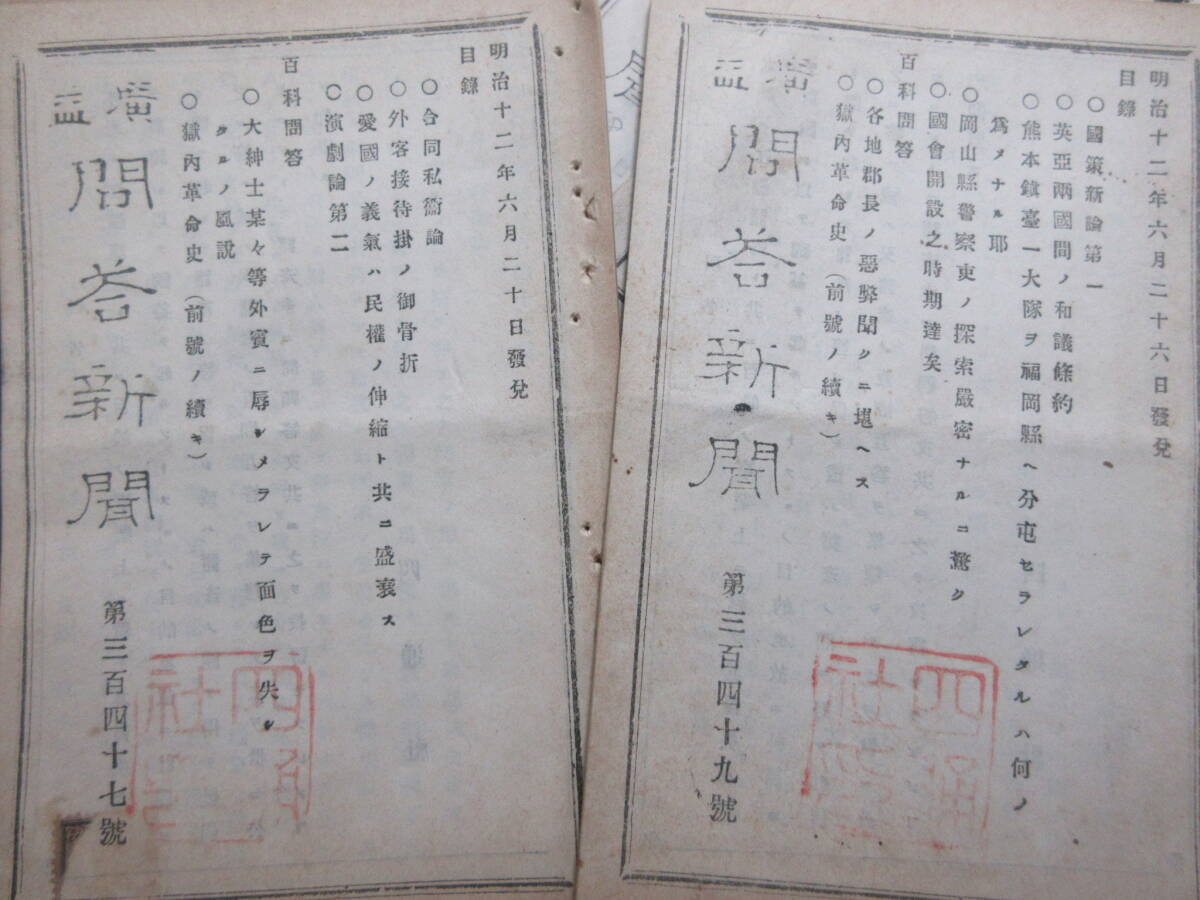 明治十二年六月二十六日發兌
目錄
○國策新論第一
○英亞兩國間ノ和議條約
○熊本鎮臺一大隊ヲ福岡縣ヘ分屯セラレタルハ何ノ
爲メナル耶
○岡山縣警察吏ノ探索嚴密ナルニ驚ク
○國會開設之時期達矣
百科問答
○各地郡長ノ惡弊聞クニ堪ヘス
○獄內革命史(前號ノ續キ)
廣益
問荅新聞
第三百四十九號
明治十二年六月二十日發兌
目錄
○合同私衞論
○外客接待掛ノ御骨折
○愛國ノ義氣ハ民權ノ伸縮ト共ニ盛衰ス
○演劇論第二
百科問答
○大紳士某々等外賓ニ辱シメラレテ面色ヲ失シ
タルノ風說
○獄內革命史(前號ノ續キ)
廣益
問荅新聞
第三百四十七號